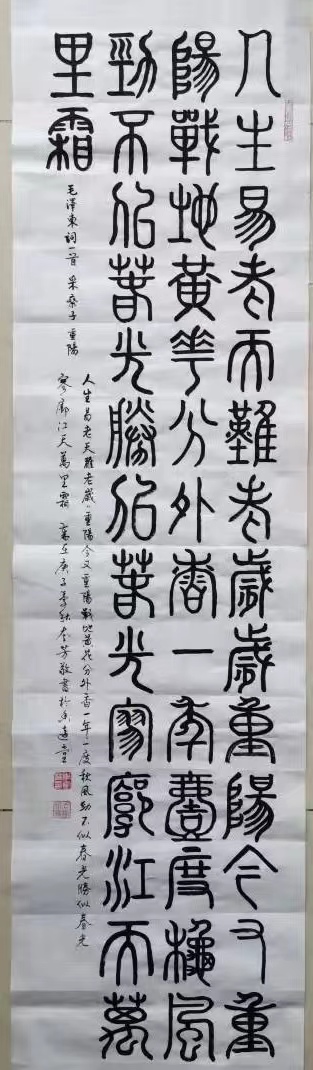 人生易老天難老歲歲重陽今又重
陽戰地黃華分外香一年壹度秋風
勁不似春光勝似春光寥廓江天萬
里霜
毛澤東詞一首 采桑子 重陽
人生易老天難老歲〻重陽今又重陽戰地黃花分外香一年一度秋風勁不似春光勝似春光
寥廓江天萬里霜 歲在庚子季秋 芳敬書於